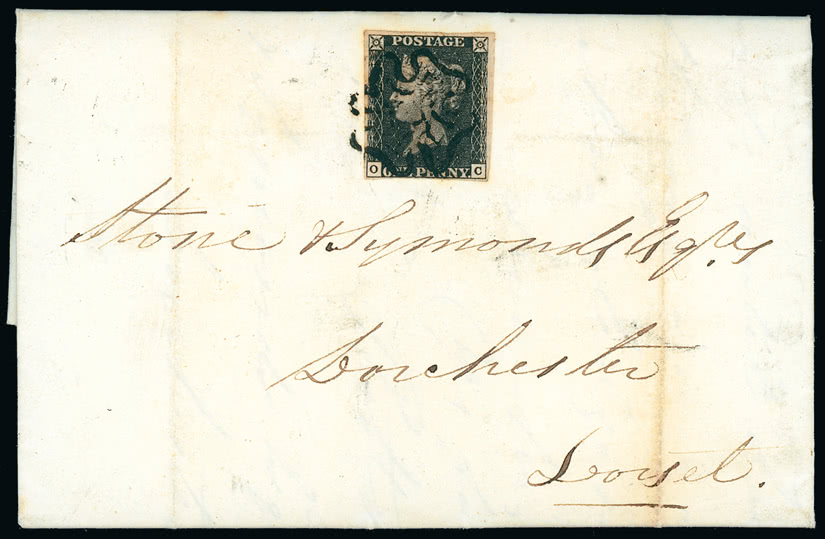 POSTAGE
O ONE PENNY C
Stone & Symonds Esqres
Dorchester
Dorset.